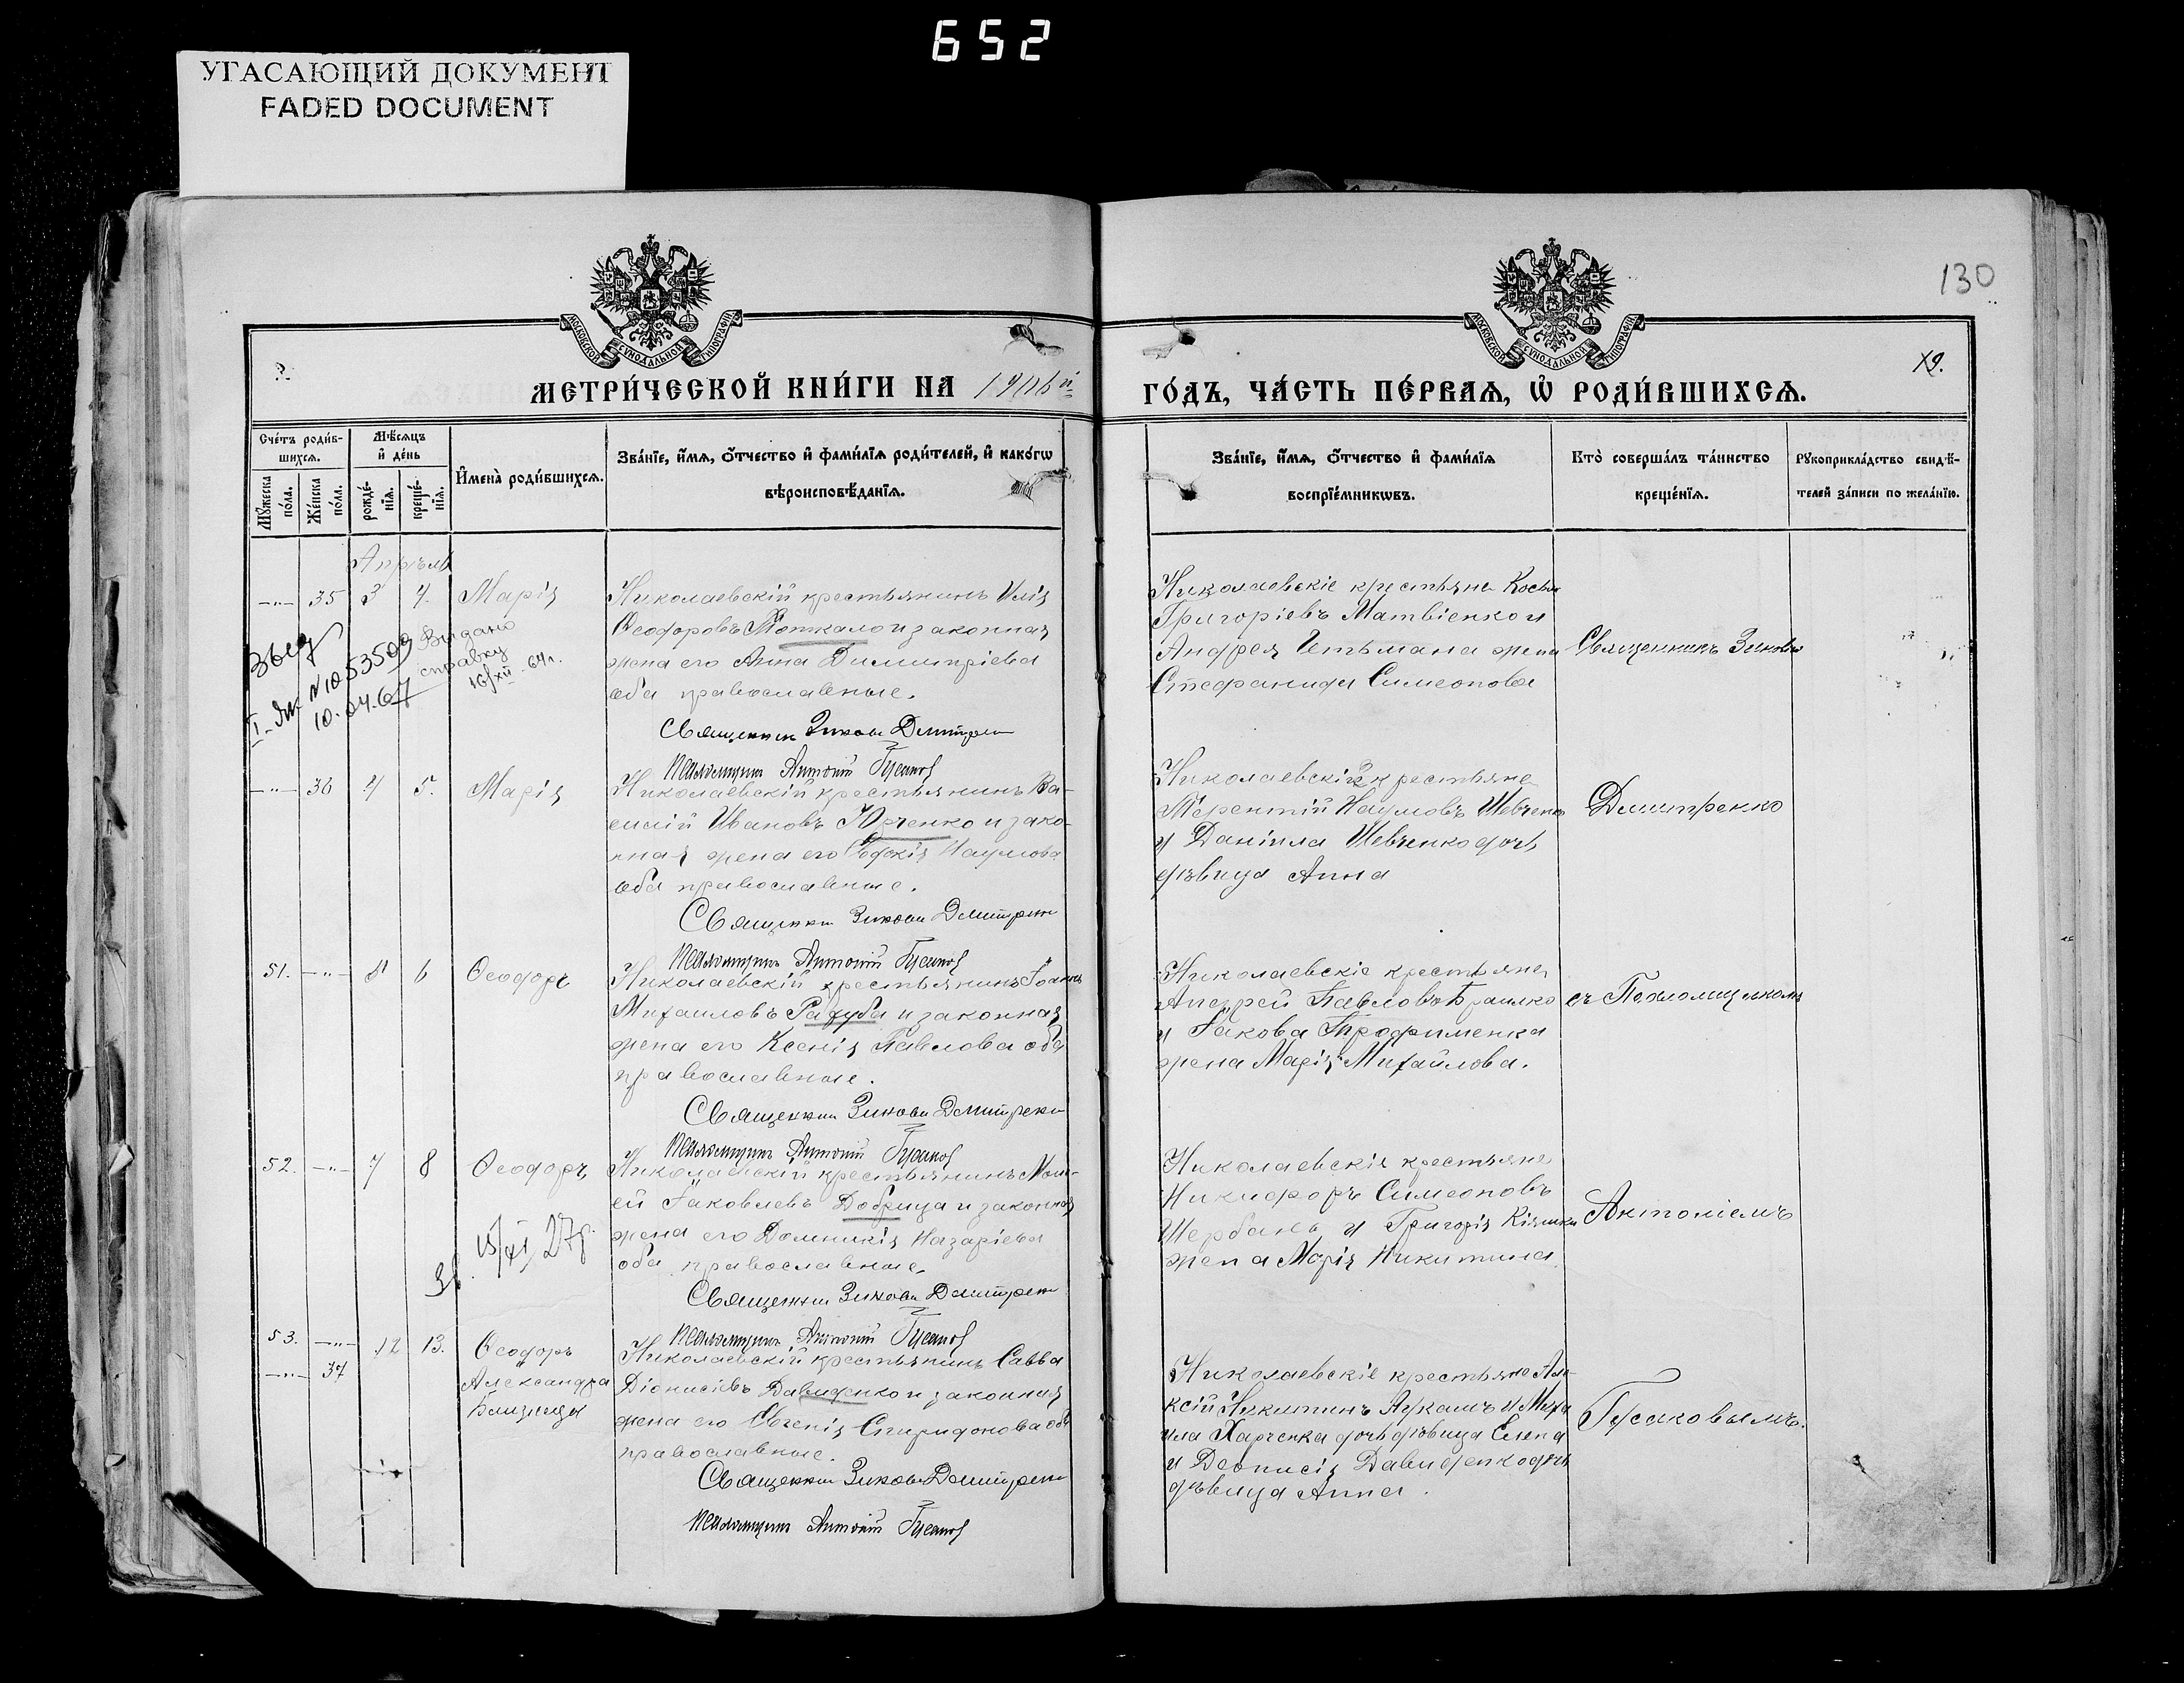 652
УГАСАЮЩИЙ ДОКУМЕНТ
FADED DOCUMENT
130
МОСКОВСКОЙ СѴНОДАЛЬНОЙ ТИПОГРАФІИ
МОСКОВСКОЙ СѴНОДАЛЬНОЙ ТИПОГРАФІИ
МЕТРИ́ЧЕСКОЙ КНИ́ГИ НА 1906й
ГО́ДЪ, ЧА́СТЬ ПЕ́РВАѦ, Ѡ҆ РОДИ́ВШИХСѦ.
Сче́тъ роди́в-
шихсѧ.
Мꙋ́жеска по́ла.
Же́нска по́ла.
Мѣ́сѧцъ и҆ де́нь
рожде́-нїѧ.
креще́-нїѧ.
И҆мена̀ роди́вшихсѧ.
Зва́нїе, и҆́мѧ, ѻ҆́тчество и҆ фами́лїѧ роди́телей, и҆ како́гѡ
вѣроисповѣ́данїѧ.
Зва́нїе, и҆́мѧ, ѻ҆́тчество и҆ фами́лїѧ
воспрїе́мникѡвъ.
Кто̀ соверша́лъ та́инство
креще́нїѧ.
Рꙋкоприкла́дство свидѣ́-
телей за́писи по жела́нїю.
Апрѣль
—"— 35 3 4. Марія
Николаевскій крестьянинъ Илія
Ѳеодоровъ и законная
жена его Анна Димитріева
оба православные.
Священник Зиновий Дмитренко
Псаломщик Антоний Гусаков
Выдано
справку
16/XII.64г.
N1053509
10.04.67
Николаевскіе крестьяне Косьма
Григоріевъ Матвіенко и
Андрея Гетьмана жена
Стефанида Симеонова
Священникъ Зиновій
—"— 36 4 5. Марія
Николаевскій крестьянинъ Ва-
силій Ивановъ Юрченко и зако-
нная жена его Евдокія Наумова
оба православные.
Священник Зиновий Дмитренко
Псаломщик Антоний Гусаков
Николаевскіе крестьяне
Терентій Наумовъ Шевченко
и Даніила Шевченко дочь
дѣвица Анна
Дмитренко
51. —"— 6 Ѳеодоръ
Николаевскій крестьянинъ Іоаннъ
Михаиловъ Рагуба и законная
жена его Ксенія Павлова оба
православные.
Священник Зиновий Дмитренко
Псаломщик Антоний Гусаков
Николаевскіе крестьяне
Андрей Павловъ
и Іакова Трофименка
жена Марія Михайлова.
съ Псаломщикомъ
52. —"— 7 8 Ѳеодоръ
Николаевскій крестьянинъ Мои-
сей Іаковлевъ Добрица и законная
жена его Домникія Назаріева
оба православные.
Священник Зиновий Дмитренко
Псаломщик Антоний Гусаков
15/XI 27г.
Николаевскіе крестьяне
Никифоръ Симеоновъ
Щербань и Григорія
жена Марія Никитина
Антоніемъ
53. —"— 12 13. Ѳеодоръ
—"— 37 Александра
близнецы
Николаевскій крестьянинъ Савва
Діонисіевъ Давиденко и законная
жена его Евгенія Спиридонова оба
православные.
Священник Зиновий Дмитренко
Псаломщик Антоний Гусаков
Николаевскіе крестьяне Але-
ксій Никитинъ и Миха
ила Харченка дочь дѣвица Елена
и Деонисія Давиденко дочь
дѣвица Анна.
Гусаковымъ.